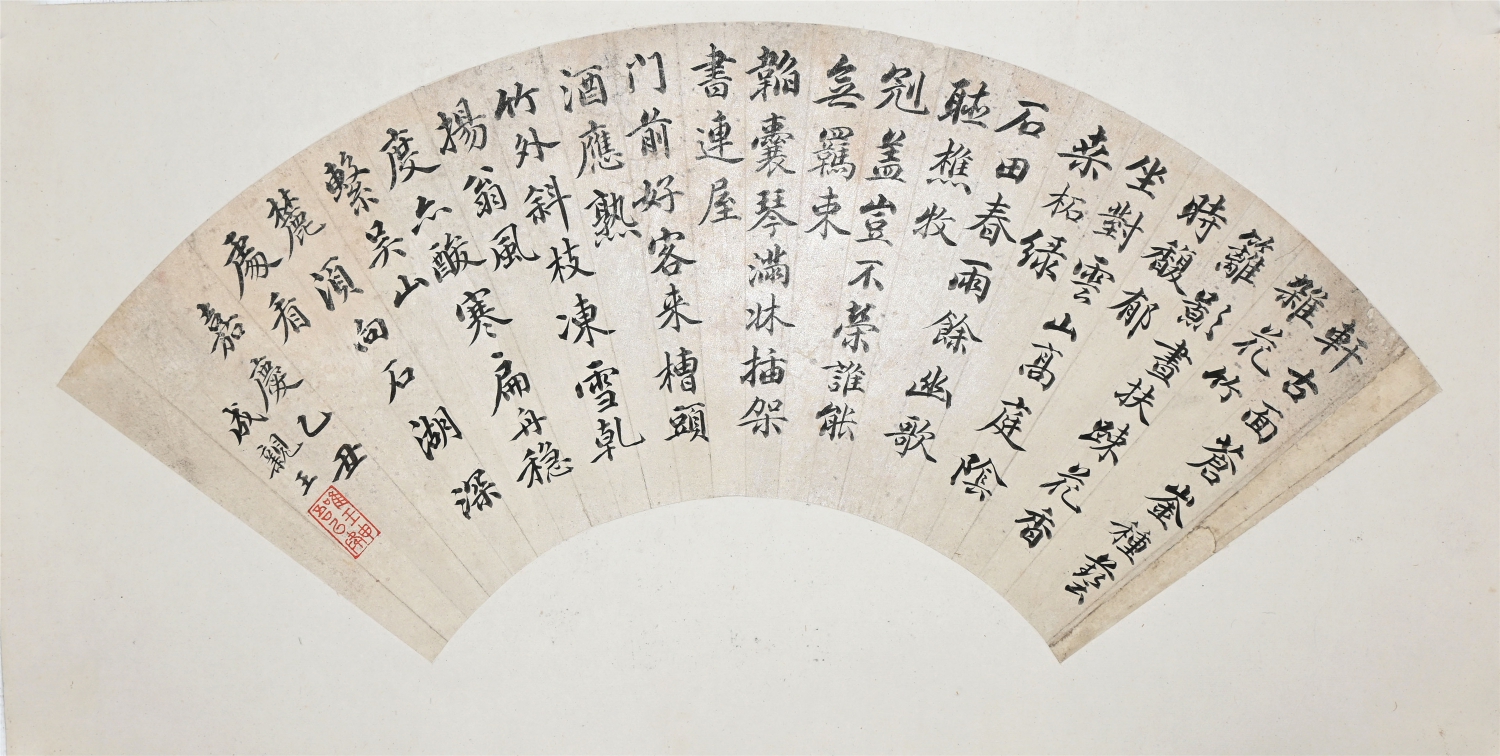 軒古面蒼崟種藝
雜花竹
籬影畫扶疎花香
時馥郁
坐對雲山高庭陰
桒柘綠
石田春雨餘幽歌
聴樵牧
冠盖豈不榮誰能
無羈束
韜囊琴滿牀插架
書連屋
门前好客来槽頭
酒應熟
竹外斜枝凍雪乹
揚翁風
度亦酸寒扁舟稳
繫吴山
麓湏向石湖深
處看
嘉慶乙丑
成親王